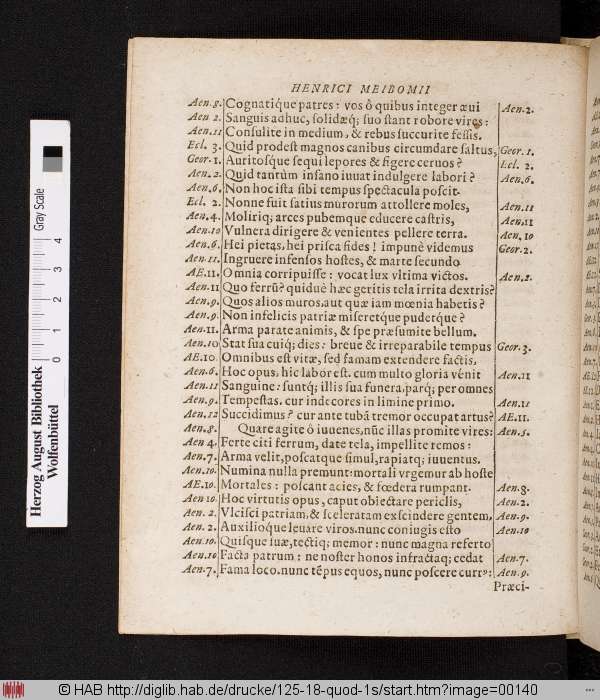 HENRICI MEIBOMII
Aen.8. Cognatique patres: vos ô quibus integer æui Aen.2.
Aen 2. Sanguis adhuc, solidæq; suo stant robore vires:
Aen.11 Consulite in medium, & rebus succurite fessis.
Ecl. 3. Quid prodest magnos canibus circumdare saltus, Geor.1.
Geor.1. Auritosque sequi lepores & figere ceruos? Ecl. 2.
Aen.2. Quid tantùm insano iuuat indulgere labori? Aen.6.
Aen.6. Non hoc ista sibi tempus spectacula poscit.
Ecl. 2. Nonne fuit satius murorum attollere moles, Aen.11
Aen.4. Moliriq; arces pubemque educere castris, Aen.11
Aen.10 Vulnera dirigere & venientes pellere terra. Aen.10
Aen.6. Hei pietas, hei prisca fides! impunè videmus Geor.2.
Aen.11. Ingruere infensos hostes, & marte secundo
AE.11. Omnia corripuisse: vocat lux vltima victos. Aen.2.
Aen.11 Quo ferrũ? quiduè hæc geritis tela irrita dextris?
Aen.9. Quos alios muros, aut quæ iam mœnia habetis?
Aen.9. Non infelicis patriæ miseretque pudetque?
Aen.11. Arma parate animis, & spe præsumite bellum.
Aen.10 Stat sua cuiq; dies: breue & irreparabile tempus Geor.3.
AE.10. Omnibus est vitæ, sed famam extendere factis,
Aen.6. Hoc opus, hic labor est. cum multo gloria venit Aen.11
Aen.11 Sanguine: suntq; illis sua funera, parq; per omnes
Aen.9. Tempestas. cur indecores in limine primo. Aen.11
Aen.12 Succidimus? cur ante tubã tremor occupat artus? AE.11.
Aen.8. Quare agite ô iuuenes, nũc illas promite vires: Aen.5.
Aen 4. Ferte citi ferrum, date tela, impellite remos:
Aen.7. Arma velit, poscatque simul, rapiatq; iuuentus.
Aen.10. Numina nulla premunt: mortali vrgemur ab hoste
AE.10. Mortales: poscant acies, & fœdera rumpant.
Aen 10 Hoc virtutis opus, caput obiectare periclis, Aen.2.
Aen. 2. Vlcisci patriam, & sceleratam exscindere gentem, Aen.9.
Aen. 2. Auxilioque leuare viros. nunc coniugis esto Aen.10
Aen.10. Quisque suæ, tectiq; memor: nunc magna referto
Aen.10 Facta patrum: ne noster honos infractaq; cedat Aen.7.
Aen.7. Fama loco. nunc tẽpus equos, nunc poscere currus: Aen.9.
Præci-
Gray Scale
0 1 2 3 4
Herzog August Bibliothek
Wolfenbüttel
© HAB http://diglib.hab.de/drucke/125-18-quod-1s/start.htm?image=00140